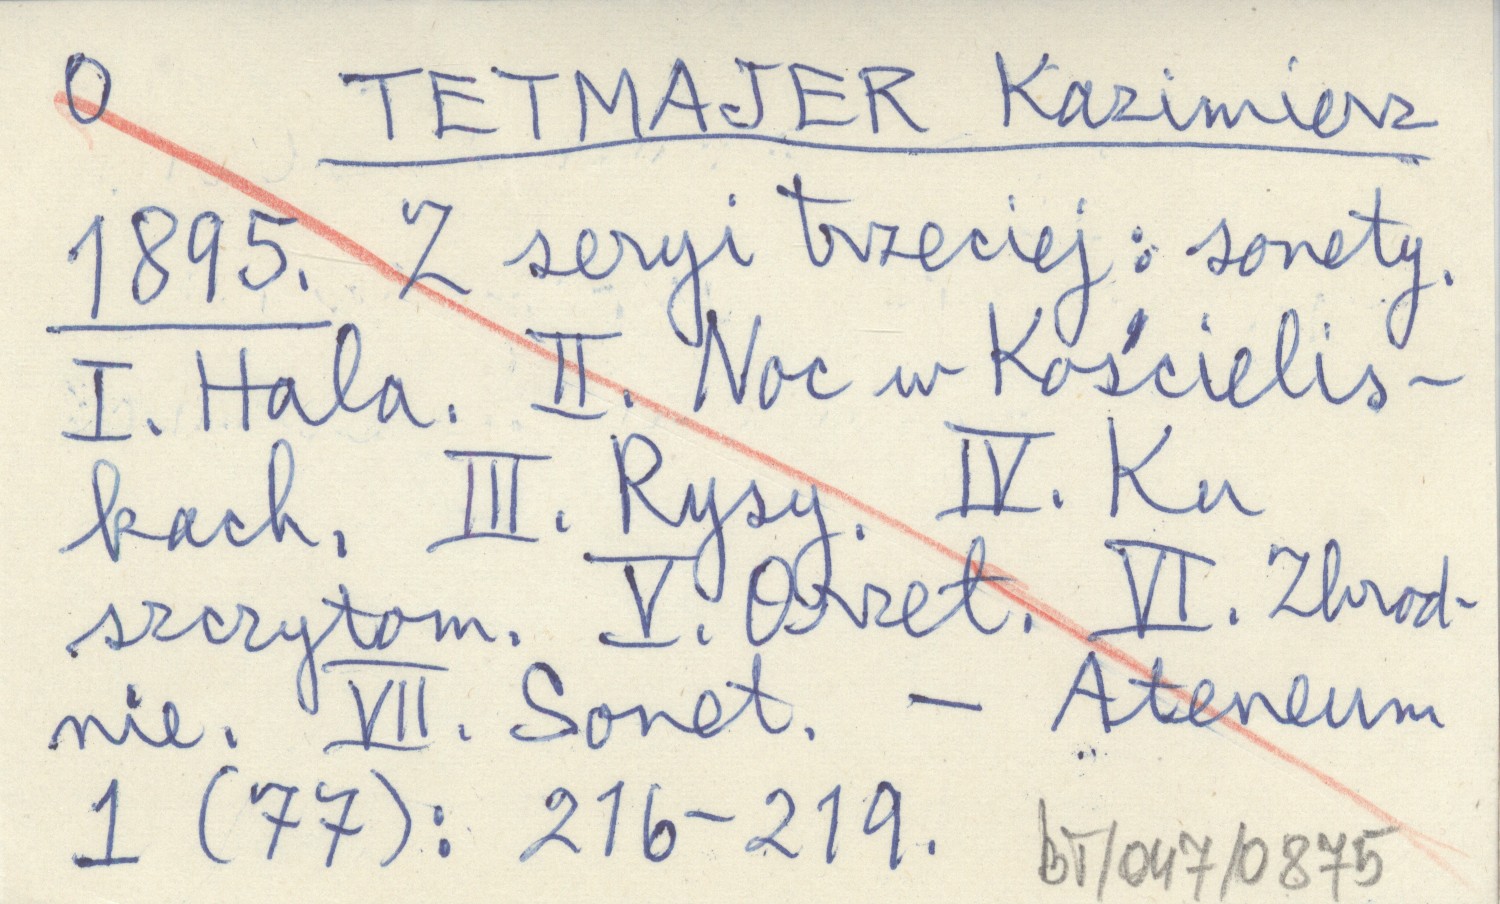 0 TETMAJER Kazimierz
1895. Z seryi trzeciej: sonety.
I. Hala. II. Noc w Kościelis-
kach. III. Rysy. IV. Ku
szczytom. V. Ozret. VI. Zbrod-
nie. VII. Sonet. — Ateneum
1 (77): 216-219.
bT/047/0875